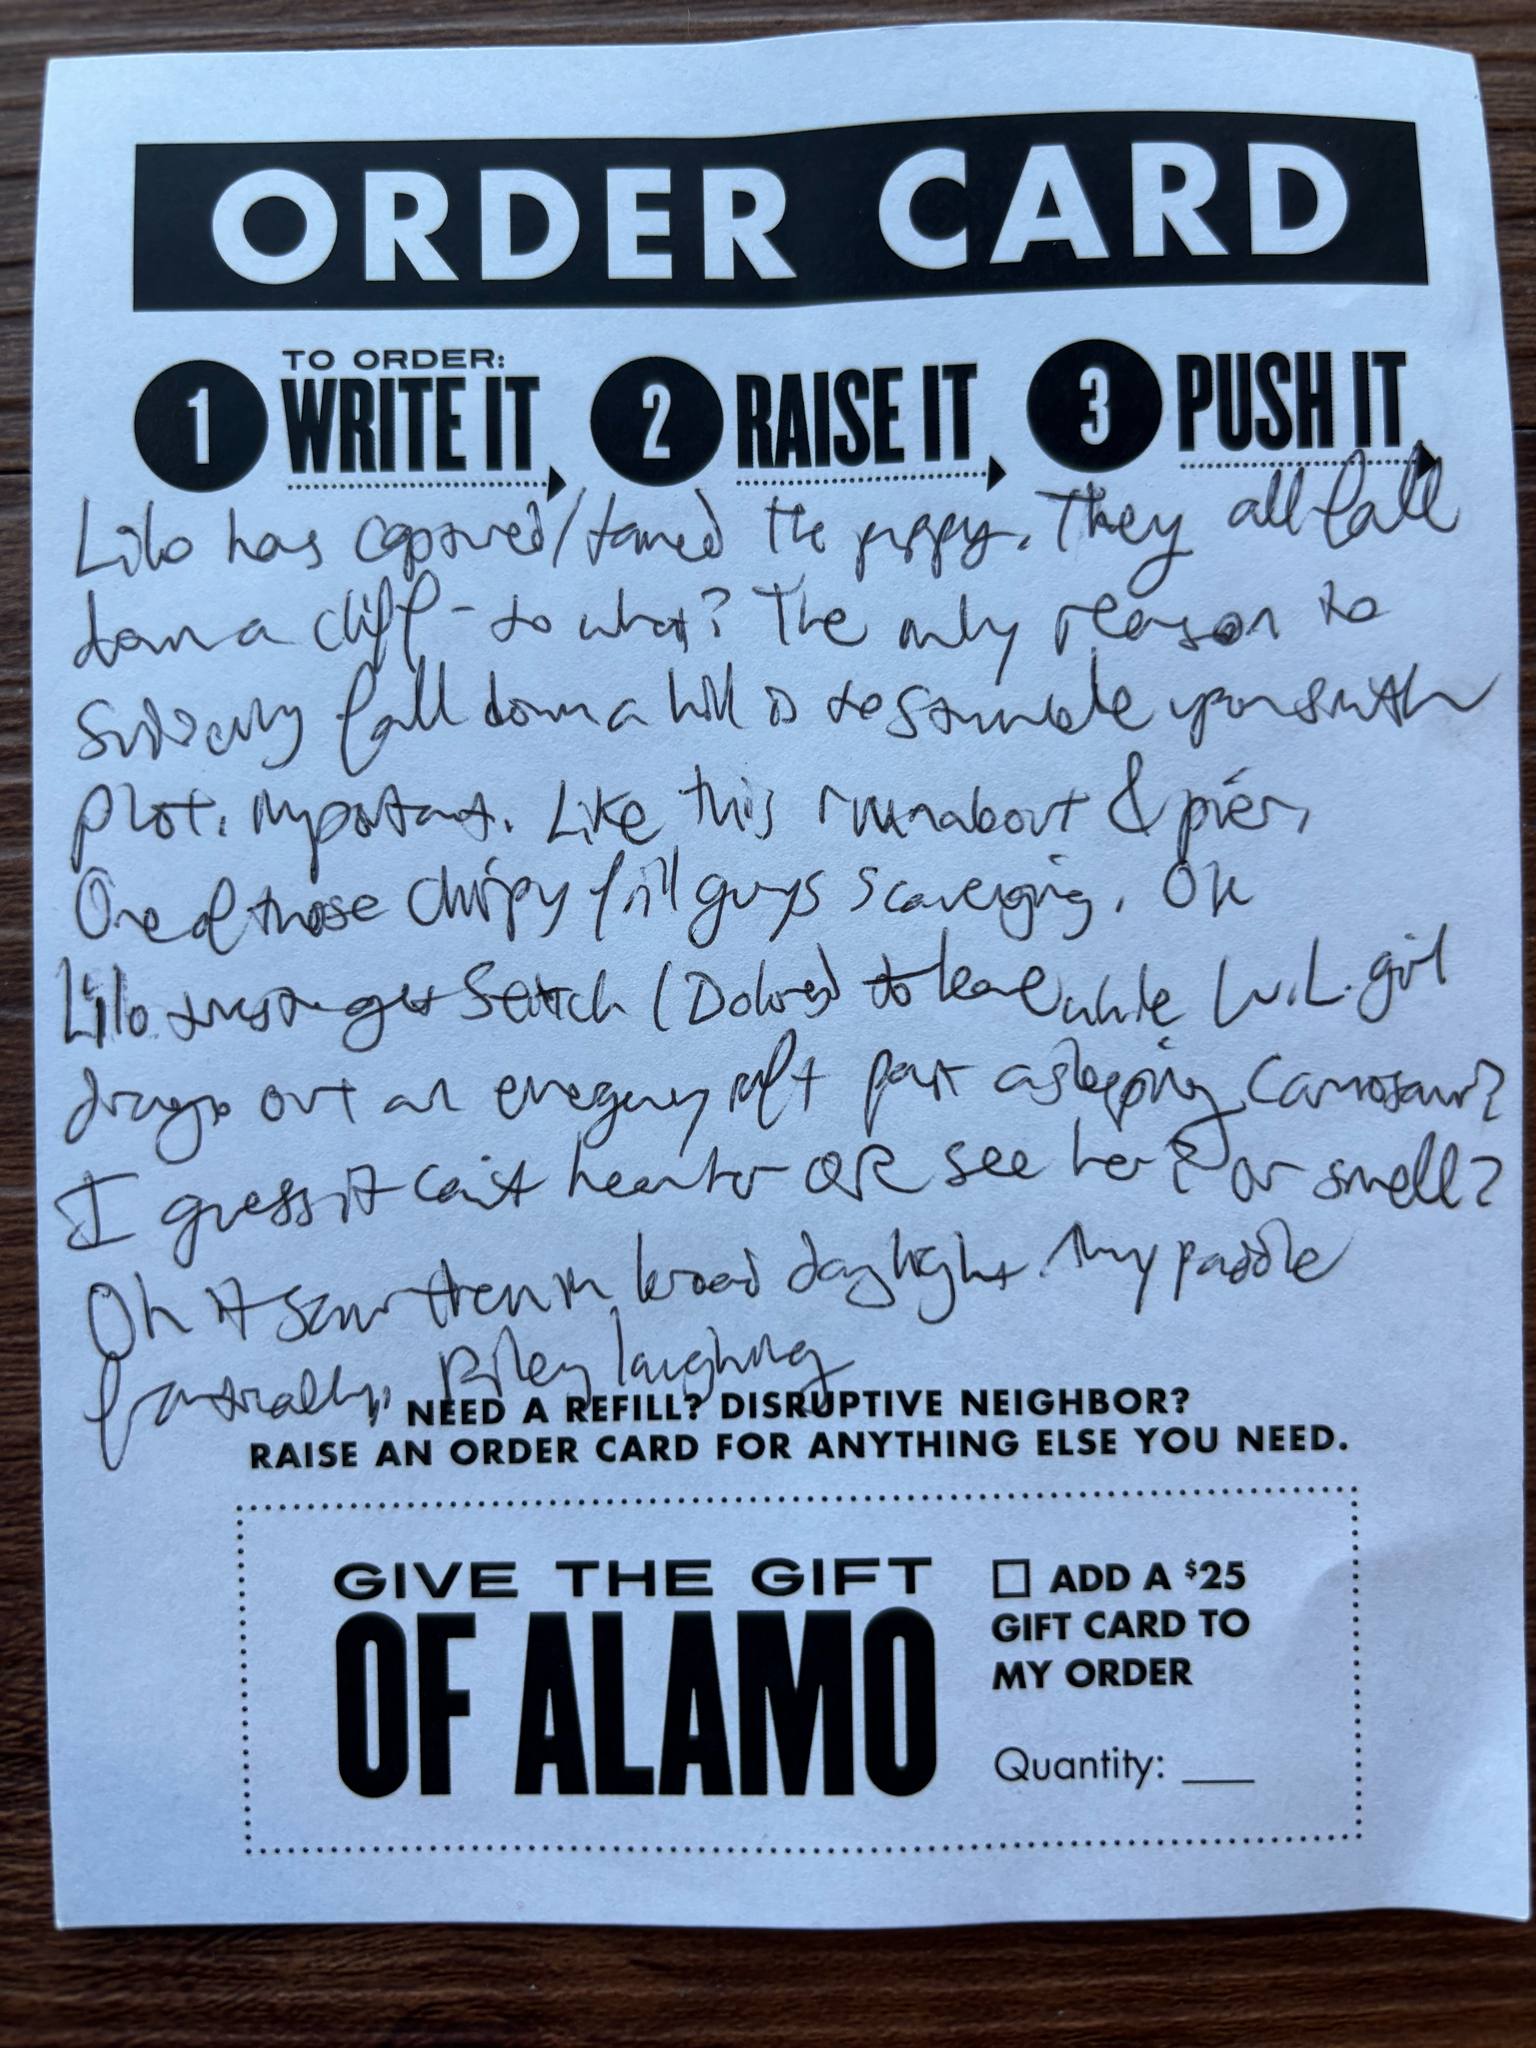 ORDER CARD
1 TO ORDER: WRITE IT 2 RAISE IT 3 PUSH IT
Lilo has captured/tamed the puppy. They all fall
down a cliff - to what? The only reason to
suddenly fall down a hill is to stumble upon smth
plot. important. Like this runabout & pier.
One of those chirpy frill guys scavenging. Ok
Lilo trust to get Stitch (Dolores) to leave while W.L. girl
drags out an emergency raft past a sleeping Carnosaur?
I guess it can't hear her OR see her? or smell?
Oh it saw them in broad daylight. They paddle
frantically, Riley laughing
NEED A REFILL? DISRUPTIVE NEIGHBOR?
RAISE AN ORDER CARD FOR ANYTHING ELSE YOU NEED.
GIVE THE GIFT
OF ALAMO
ADD A $25
GIFT CARD TO
MY ORDER
Quantity: ___